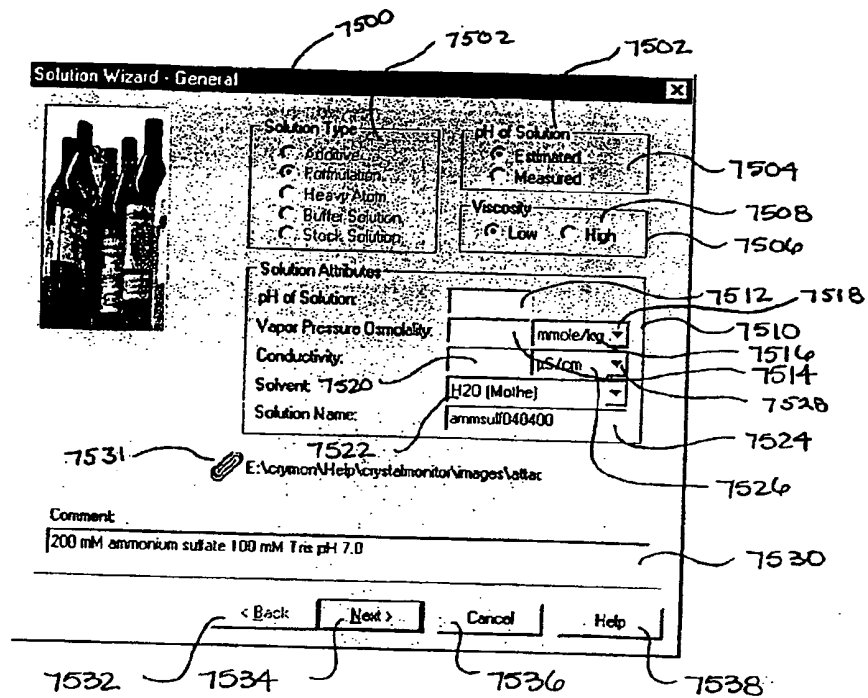 7500
7502
7502
Solution Wizard - General
Solution Type
Additive
Formulation
Heavy Atom
Buffer Solution
Stock Solution
pH of Solution
Estimated
Measured
7504
Viscosity
Low
High
7508
7506
Solution Attributes
pH of Solution:
7512
7518
Vapor Pressure Osmolality:
mmole/kg
7510
7516
Conductivity:
µS/cm
7514
Solvent:
7520
H2O (Mothe)
7528
Solution Name:
ammsulf040400
7522
7524
7531
E:\crymon\Help\crystalmonitor\images\attac
7526
Comment:
200 mM ammonium sulfate 100 mM Tris pH 7.0
7530
< Back
Next >
Cancel
Help
7532
7534
7536
7538